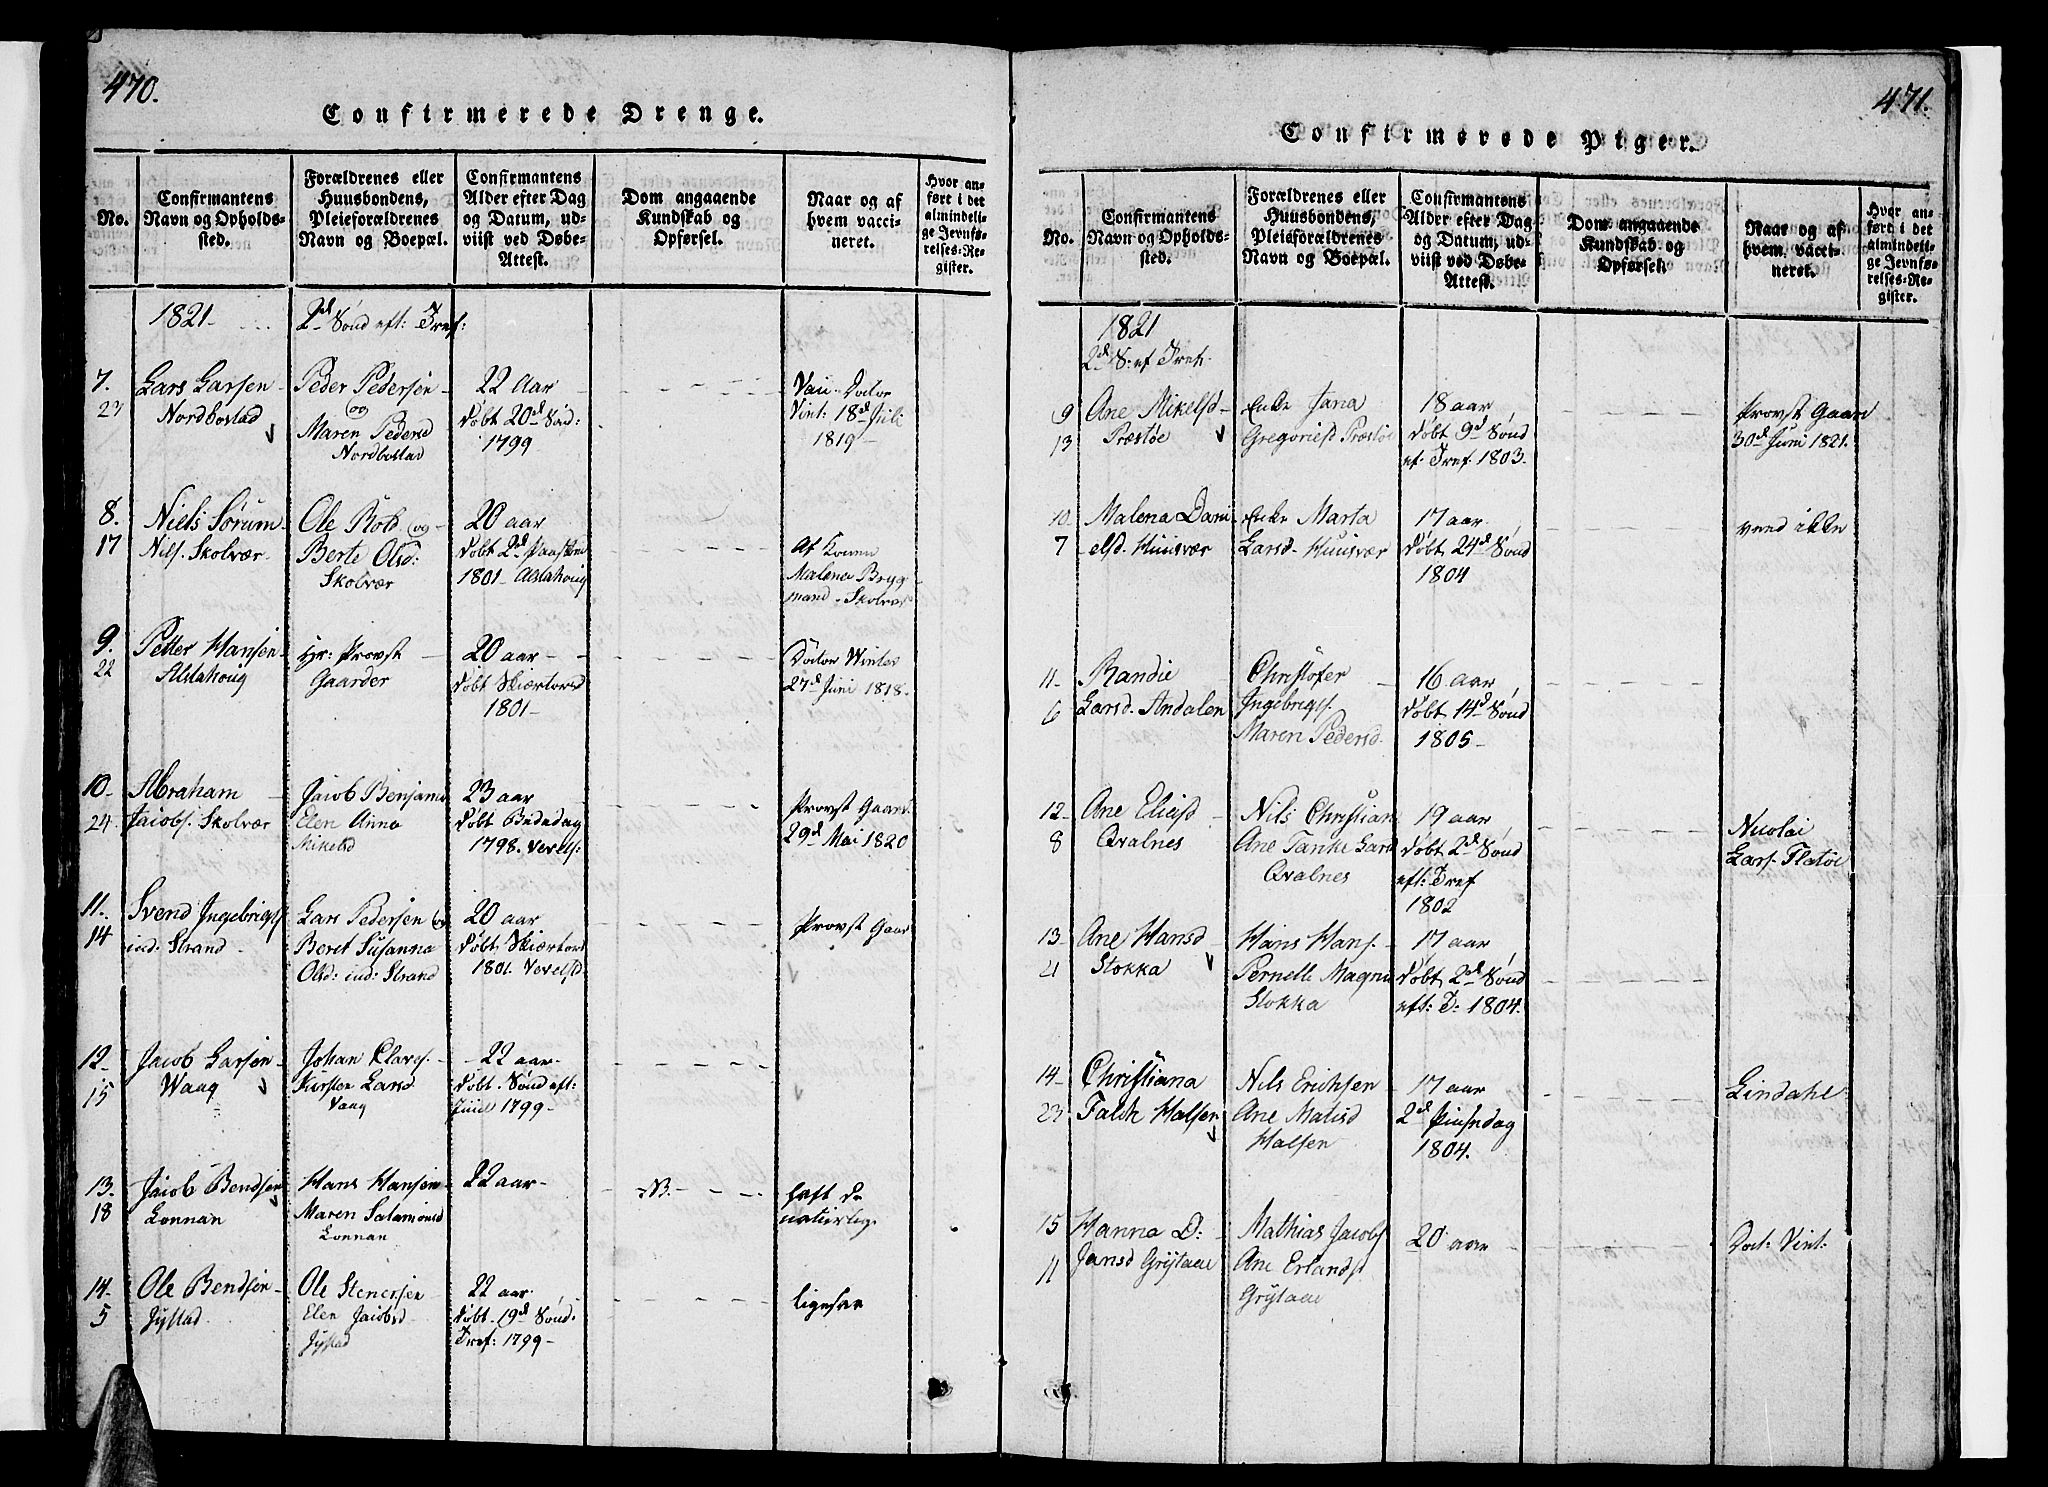 470.
Confirmerede Drenge.
No.
Confirmantens
Navn og Opholds-
sted.
Forældrenes eller
Huusbondens,
Pleieforældrenes
Navn og Boepæl.
Confirmantens
Alder efter Dag
og Datum, ud-
viist ved Døbe-
Attest.
Dom angaaende
Kundskab og
Opførsel.
Naar og af
hvem vacci-
neret.
Hvor an-
ført i det
almindeli-
ge Jevnfø-
relses-Re-
gister.
1821
2d Sønd eft: Tref:
7.
23
Lars Larsen
Nordbostad
Peder Pedersen
og
Maren Pedersd
Nordbostad
22 Aar
døbt 20d Sønd:
1799
Vint: 18d Juli
1819
8.
17
Niels Sørum
Nils. Skolvær
Ole Rold og
Berte Olsd:
Skolvær
20 aar
døbt 2d Paaskeu
1801 Alstahoug
Af Konen
Malena Bryg
mand. Skolvær
9.
22
Petter Hansen
Alstahoug
Hr: Provst
Gaarder
20 aar
døbt Skiertorsd
1801
Doctor Winter
27d Juni 1818.
10
24
Abraham
Jacobs. Skolvær
Jacob Benjams
Elen Anna
Mikelsd
23 aar
døbt Bededag
1798. Vevels:
Provst Gaard
29d Mai 1820
11.
14
Svend Ingebrigts
ind: Strand
Lars Pedersen og
Beret Susanna
Olsd: ind: Strand
20 aar
døbt Skiertors
1801. Vevelsd
Provst Gaar
12
15
Jacob Larsen
Waag
Johan Clavs.
Kirsten Larsd
Vaag
22 aar
døbt Sønd eft:
Juul 1799
13.
18
Jacob Bendsen
Lonnan
Hans Hansen
Maren Salamonsd
Lonnan
22 aar
NB.
haft de
naturlige
14.
5
Ole Bendsen
Jystad
Ole Stenersen
Elen Jacobsd
Jystad
22 aar
døbt 19d Sønd.
Tref: 1799
ligesaa
471.
Confirmerede Piger.
No.
Confirmantens
Navn og Opholds-
sted.
Forældrenes eller
Huusbondens,
Pleieforældrenes
Navn og Boepæl.
Confirmantens
Alder efter Dag
og Datum, ud-
viist ved Døbe-
Attest.
Dom angaaende
Kundskab og
Opførsel.
Naar og af
hvem vacci-
neret.
Hvor an-
ført i det
almindeli-
ge Jevnfø-
relses-Re-
gister.
1821
2d S: ef Tref.
9
13
Ane Mikelsd
Præstøe
Enke Jana
Gregoriesd Præstøe
18 aar
døbt 9d Sønd
ef. Tref 1803.
Provst Gaard
30d Juni 1821.
10
7
Malena Dani
elsd. Huusvær
Enke Marta
Larsd. Huusvær
17 aar
døbt 24d Sønd
1804
vend ikke
11
6
Randie
Larsd. Andalen
Christofer
Ingebrigs.
Maren Pedersd
16 aar
døbt 14d Sønd
1805
12
8
Ane Eliesd
Qvalnes
Nils Christian
Ane Tanke Larsd
Qvalnes
19 aar
døbt 2d Sønd
eft: Tref
1802
Nicolai
Lars. Flatøe
13
21
Ane Hansd
Stokka
Hans Hans.
Pernelle Magnu
Stokka
17 aar
døbt 2d Sønd
eft: T: 1804.
14
23
Christiana
Falch Halsen
Nils Erichsen
Ane Matisd
Halsen
17 aar
2d Pinsedag
1804.
Lindahl
15
11
Hanna D:
Jansd Grytaae
Mathias Jacobs
Ane Erlandsd
Grytaae
20 aar
Doct: Vint: